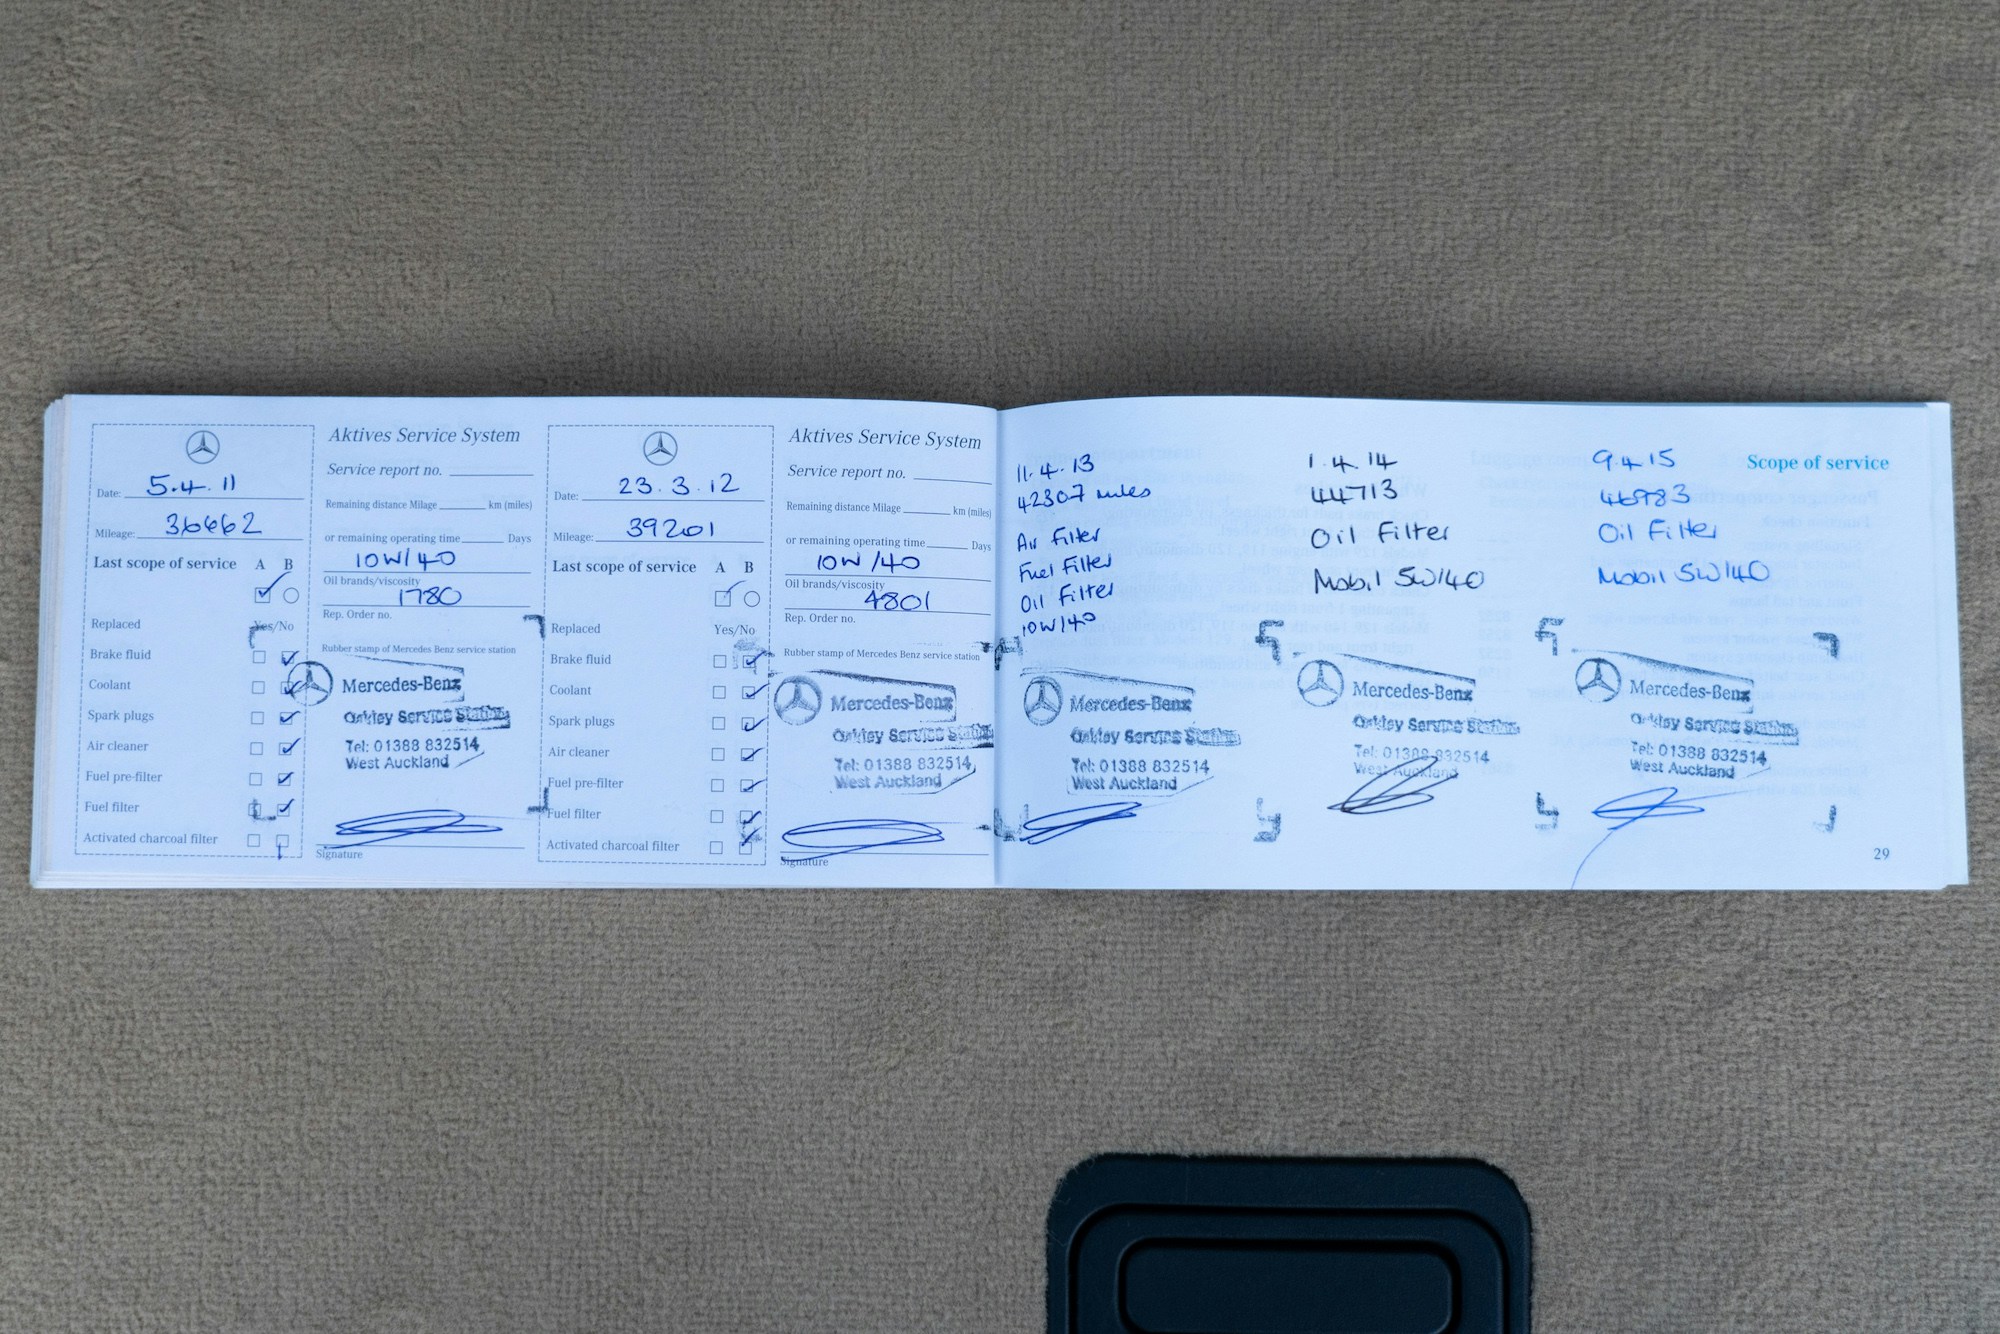 Date: 5.4.11
Mileage: 36662
Last scope of service A B
Replaced Yes/No
Brake fluid
Coolant
Spark plugs
Air cleaner
Fuel pre-filter
Fuel filter
Activated charcoal filter
Aktives Service System
Service report no.
Remaining distance Milage km (miles)
or remaining operating time Days
10W/40
Oil brands/viscosity
1780
Rep. Order no.
Rubber stamp of Mercedes Benz service station
Mercedes-Benz
Oakley Service Station
Tel: 01388 832514
West Auckland
Signature
Date: 23.3.12
Mileage: 39201
Last scope of service A B
Replaced Yes/No
Brake fluid
Coolant
Spark plugs
Air cleaner
Fuel pre-filter
Fuel filter
Activated charcoal filter
Aktives Service System
Service report no.
Remaining distance Milage km (miles)
or remaining operating time Days
10W/40
Oil brands/viscosity
4801
Rep. Order no.
Rubber stamp of Mercedes Benz service station
Mercedes-Benz
Oakley Service Station
Tel: 01388 832514
West Auckland
Signature
11.4.13
42307 miles
Air Filter
Fuel Filter
Oil Filter
10W/40
Mercedes-Benz
Oakley Service Station
Tel: 01388 832514
West Auckland
1.4.14
44713
Oil Filter
Mobil 5W/40
Mercedes-Benz
Oakley Service Station
Tel: 01388 832514
West Auckland
9.4.15
Oil Filter
Mobil 5W/40
Mercedes-Benz
Oakley Service Station
Tel: 01388 832514
West Auckland
Scope of service
29